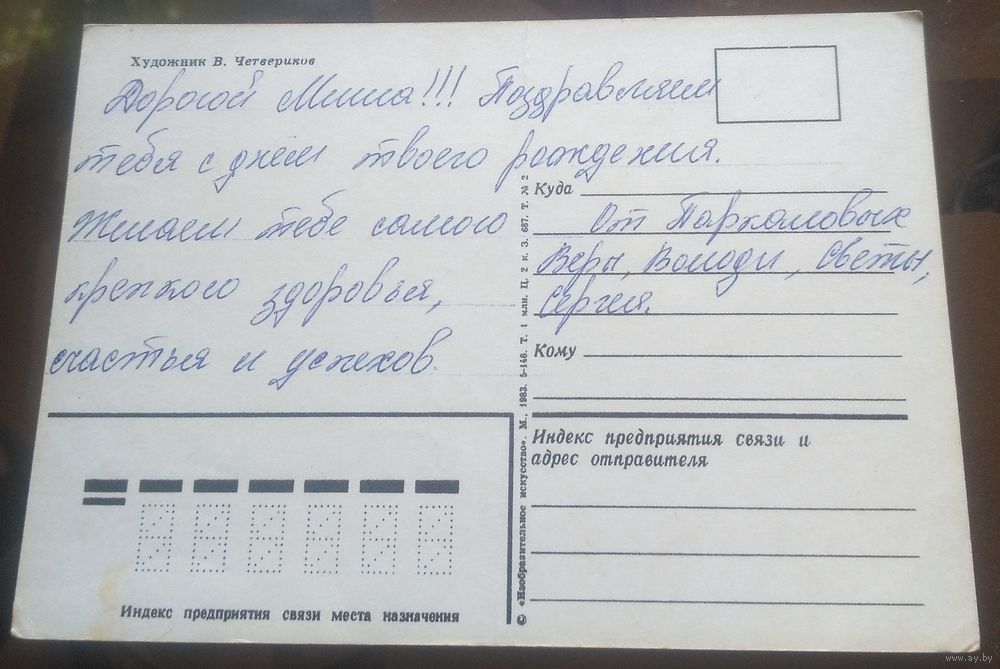 Художник В. Четвериков
Дорогой Миша!!! Поздравляем
тебя с днём твоего рождения.
Желаем тебе самого
крепкого здоровья,
счастья и успехов.
Куда
От Паркаловых
Веры, Володи, Светы,
Сергея.
Кому
Индекс предприятия связи и
адрес отправителя
Индекс предприятия связи места назначения
© «Изобразительное искусство». М., 1983. 5-146. Т. 1 млн. Ц. 2 к. З. 687. Т. № 2
www.ay.by